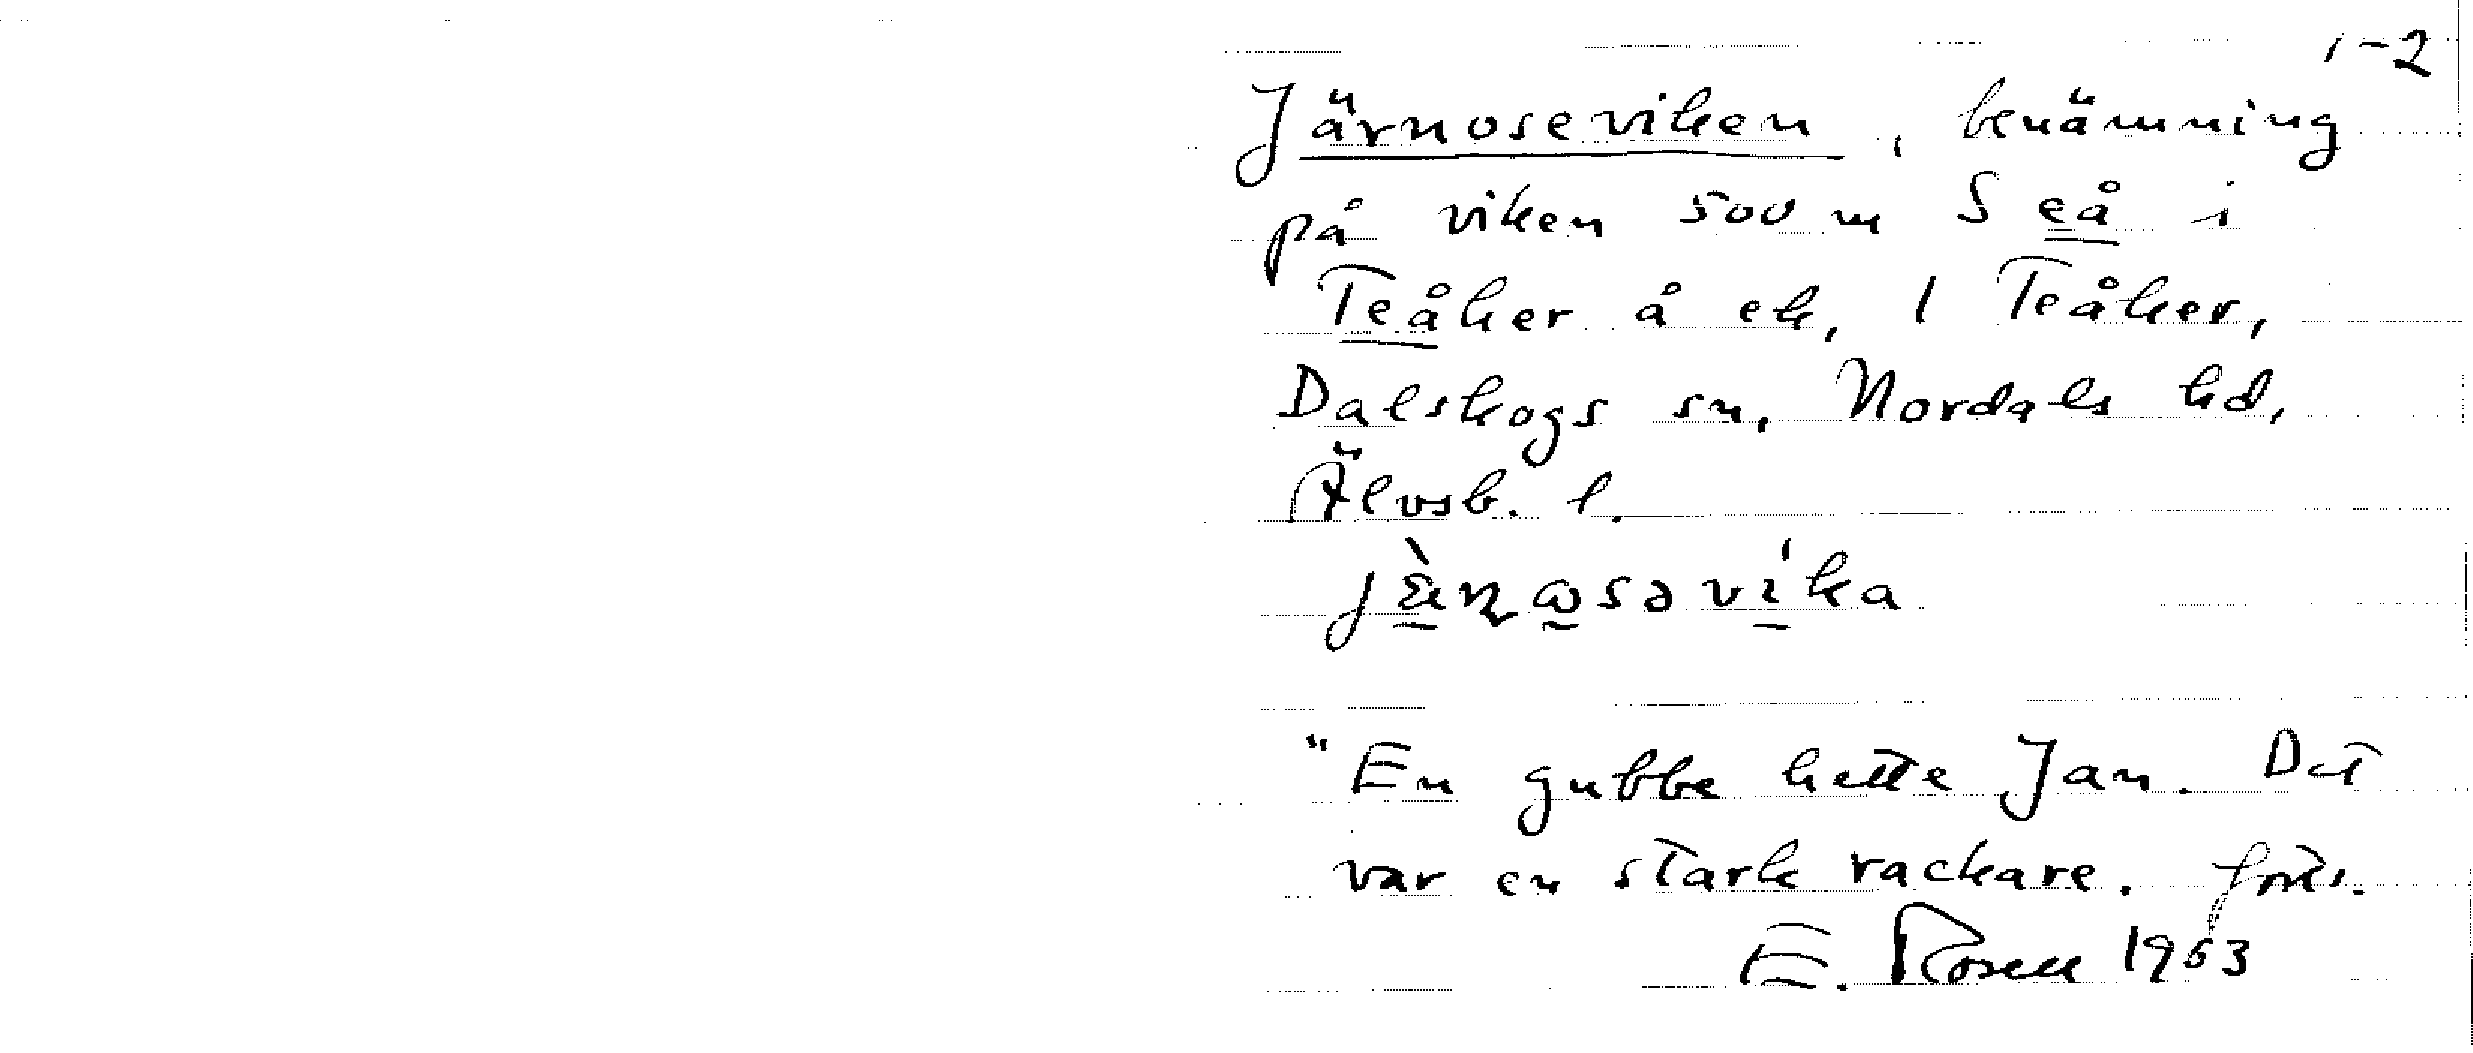 1-2
Järnoseviken, benämning
på viken 500 m S eå i
Teåker å ek, 1 Teåker,
Dalskogs sn, Nordals hd,
Älvsb. l.
"En gubbe hette Jan. Det
var en stark rackare. forts.
E. Rosell 1963